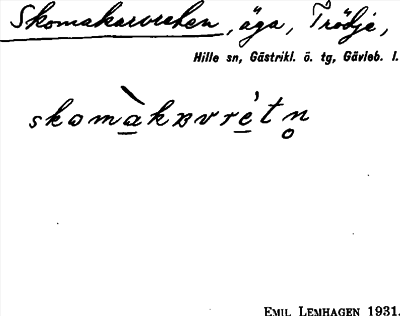 Skomakarvreten, äga, Trödje,
Hille sn, Gästrikl. ö. tg, Gävleb. l.
skomàkɐvrétn̥
EMIL LEMHAGEN 1931.